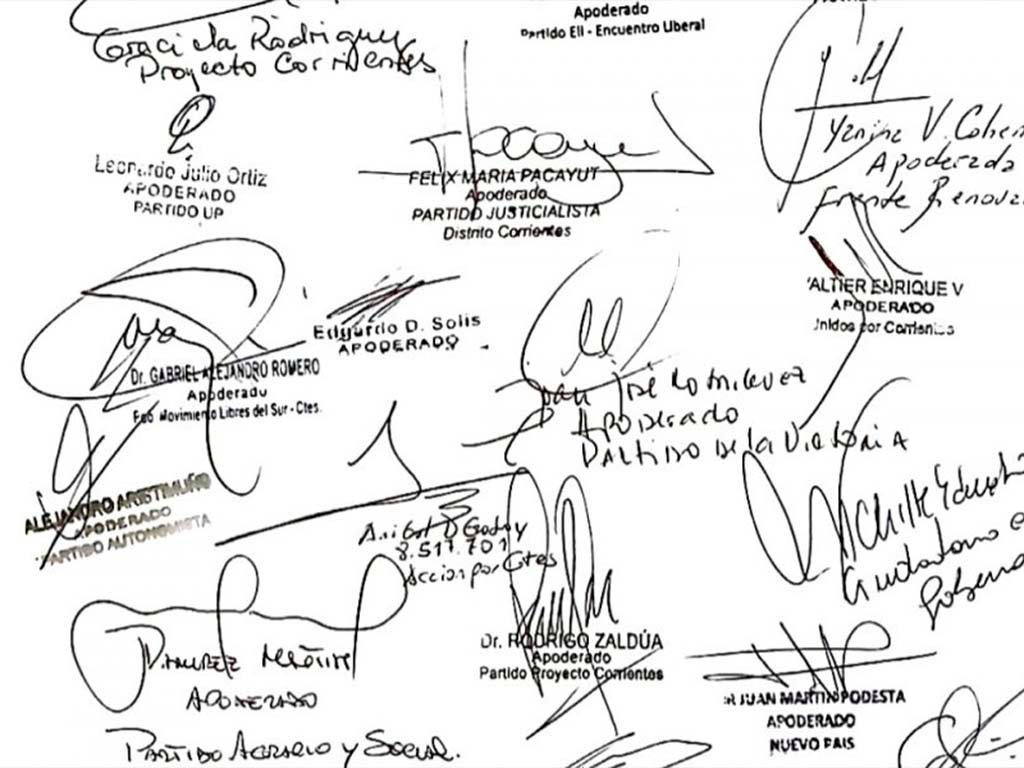 Apoderado
Partido Ell - Encuentro Liberal
Graciela Rodriguez
Proyecto Corrientes
Leonardo Julio Ortiz
APODERADO
PARTIDO UP
FELIX MARIA PACAYUT
Apoderado
PARTIDO JUSTICIALISTA
Distrito Corrientes
Yanina V. Cohen
Apoderada
Frente Renova
ALTIER ENRIQUE V
APODERADO
Unidos por Corrientes
Edgardo D. Solis
APODERADO
Dr. GABRIEL ALEJANDRO ROMERO
Apoderado
Movimiento Libres del Sur - Ctes.
Juan José
Apoderado
Partido de la Victoria
ALEJANDRO ARISTIMUÑO
APODERADO
PARTIDO AUTONOMISTA
Godoy
8.517.701
Accion por Ctes
Ramirez
Apoderado
Partido Agrario y Social.
Dr. RODRIGO ZALDÚA
Apoderado
Partido Proyecto Corrientes
JUAN MARTIN PODESTA
APODERADO
NUEVO PAIS